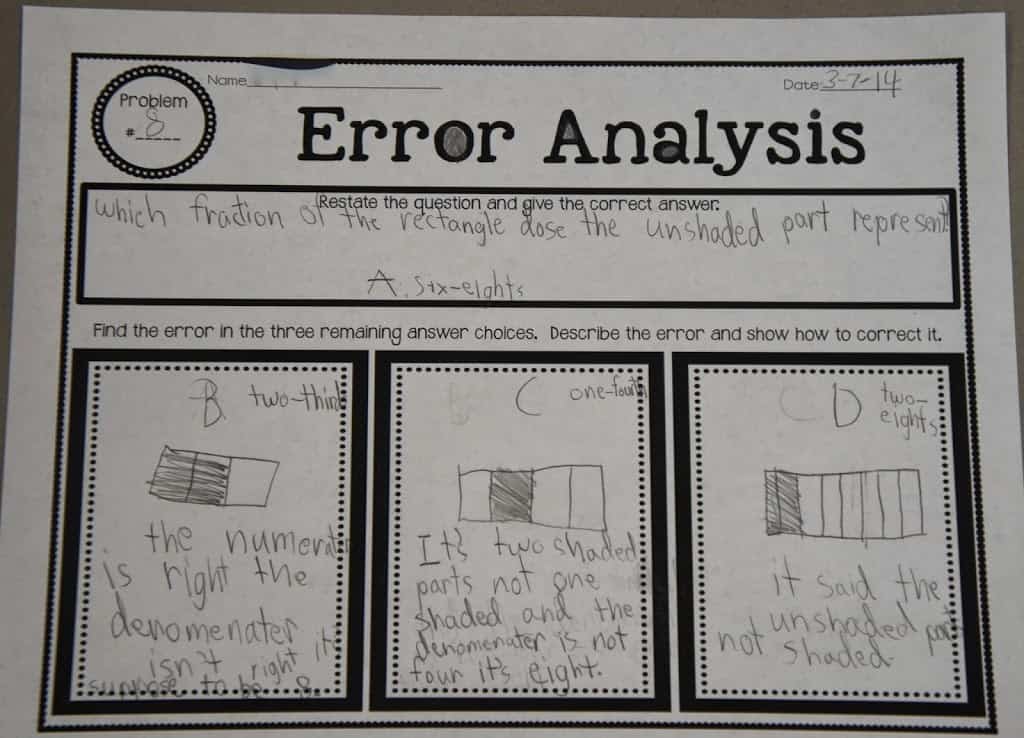 Problem
# 8
Name
Date: 3-7-14
Error Analysis
Restate the question and give the correct answer:
which fraction of the rectangle dose the unshaded part represent
A. six-eights
Find the error in the three remaining answer choices. Describe the error and show how to correct it.
B two-third
the numerater
is right the
denomenater
isn't right it's
suppose to be 8.
C one-fourth
It's two shaded
parts not one
shaded and the
denomenater is not
four it's eight.
D two-
eights
it said the
unshaded part
not shaded.